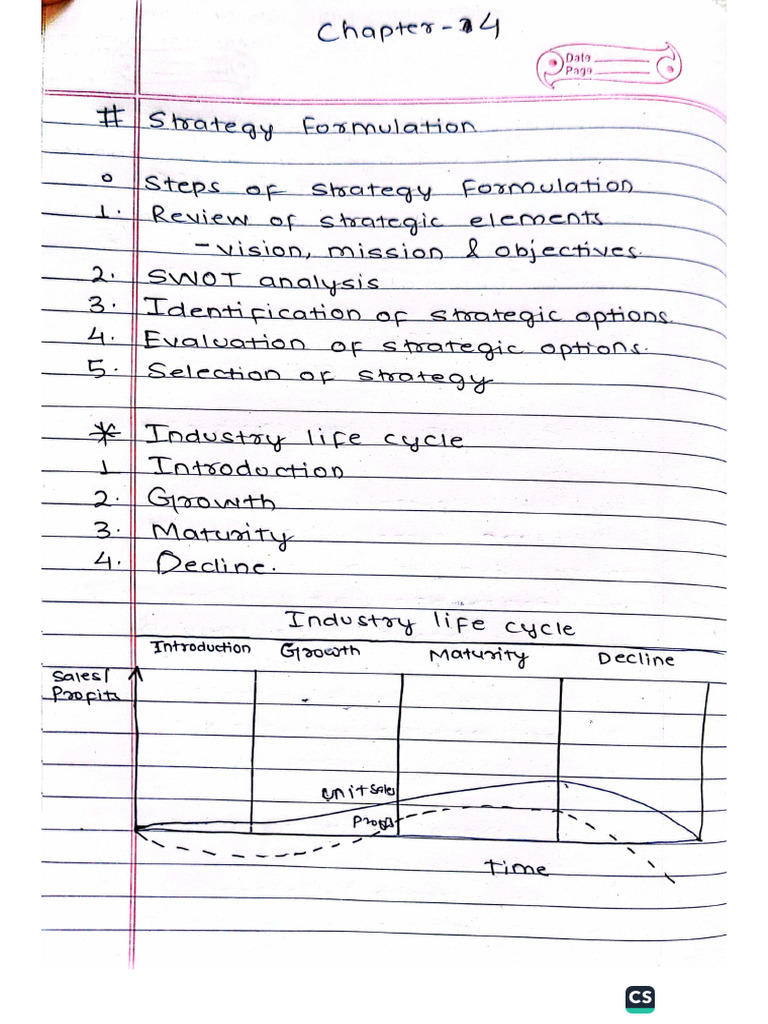 Chapter-4
Date
Page
# Strategy Formulation
o Steps of strategy Formulation
1. Review of strategic elements
- vision, mission & objectives.
2. SWOT analysis
3. Identification of strategic options.
4. Evaluation of strategic options.
5. Selection of strategy
* Industry life cycle
1 Introduction
2. Growth
3. Maturity
4. Decline.
Industry life cycle
Introduction Growth Maturity Decline
Sales/
Profits
unit sales
Profits
Time
CS